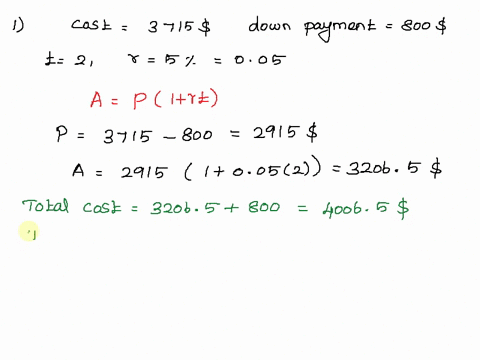 1) Cost = 3715 $ down payment = 800 $
t = 2, r = 5 % = 0.05
A = P ( 1 + rt )
P = 3715 - 800 = 2915 $
A = 2915 ( 1 + 0.05 (2) ) = 3206.5 $
Total cost = 3206.5 + 800 = 4006.5 $